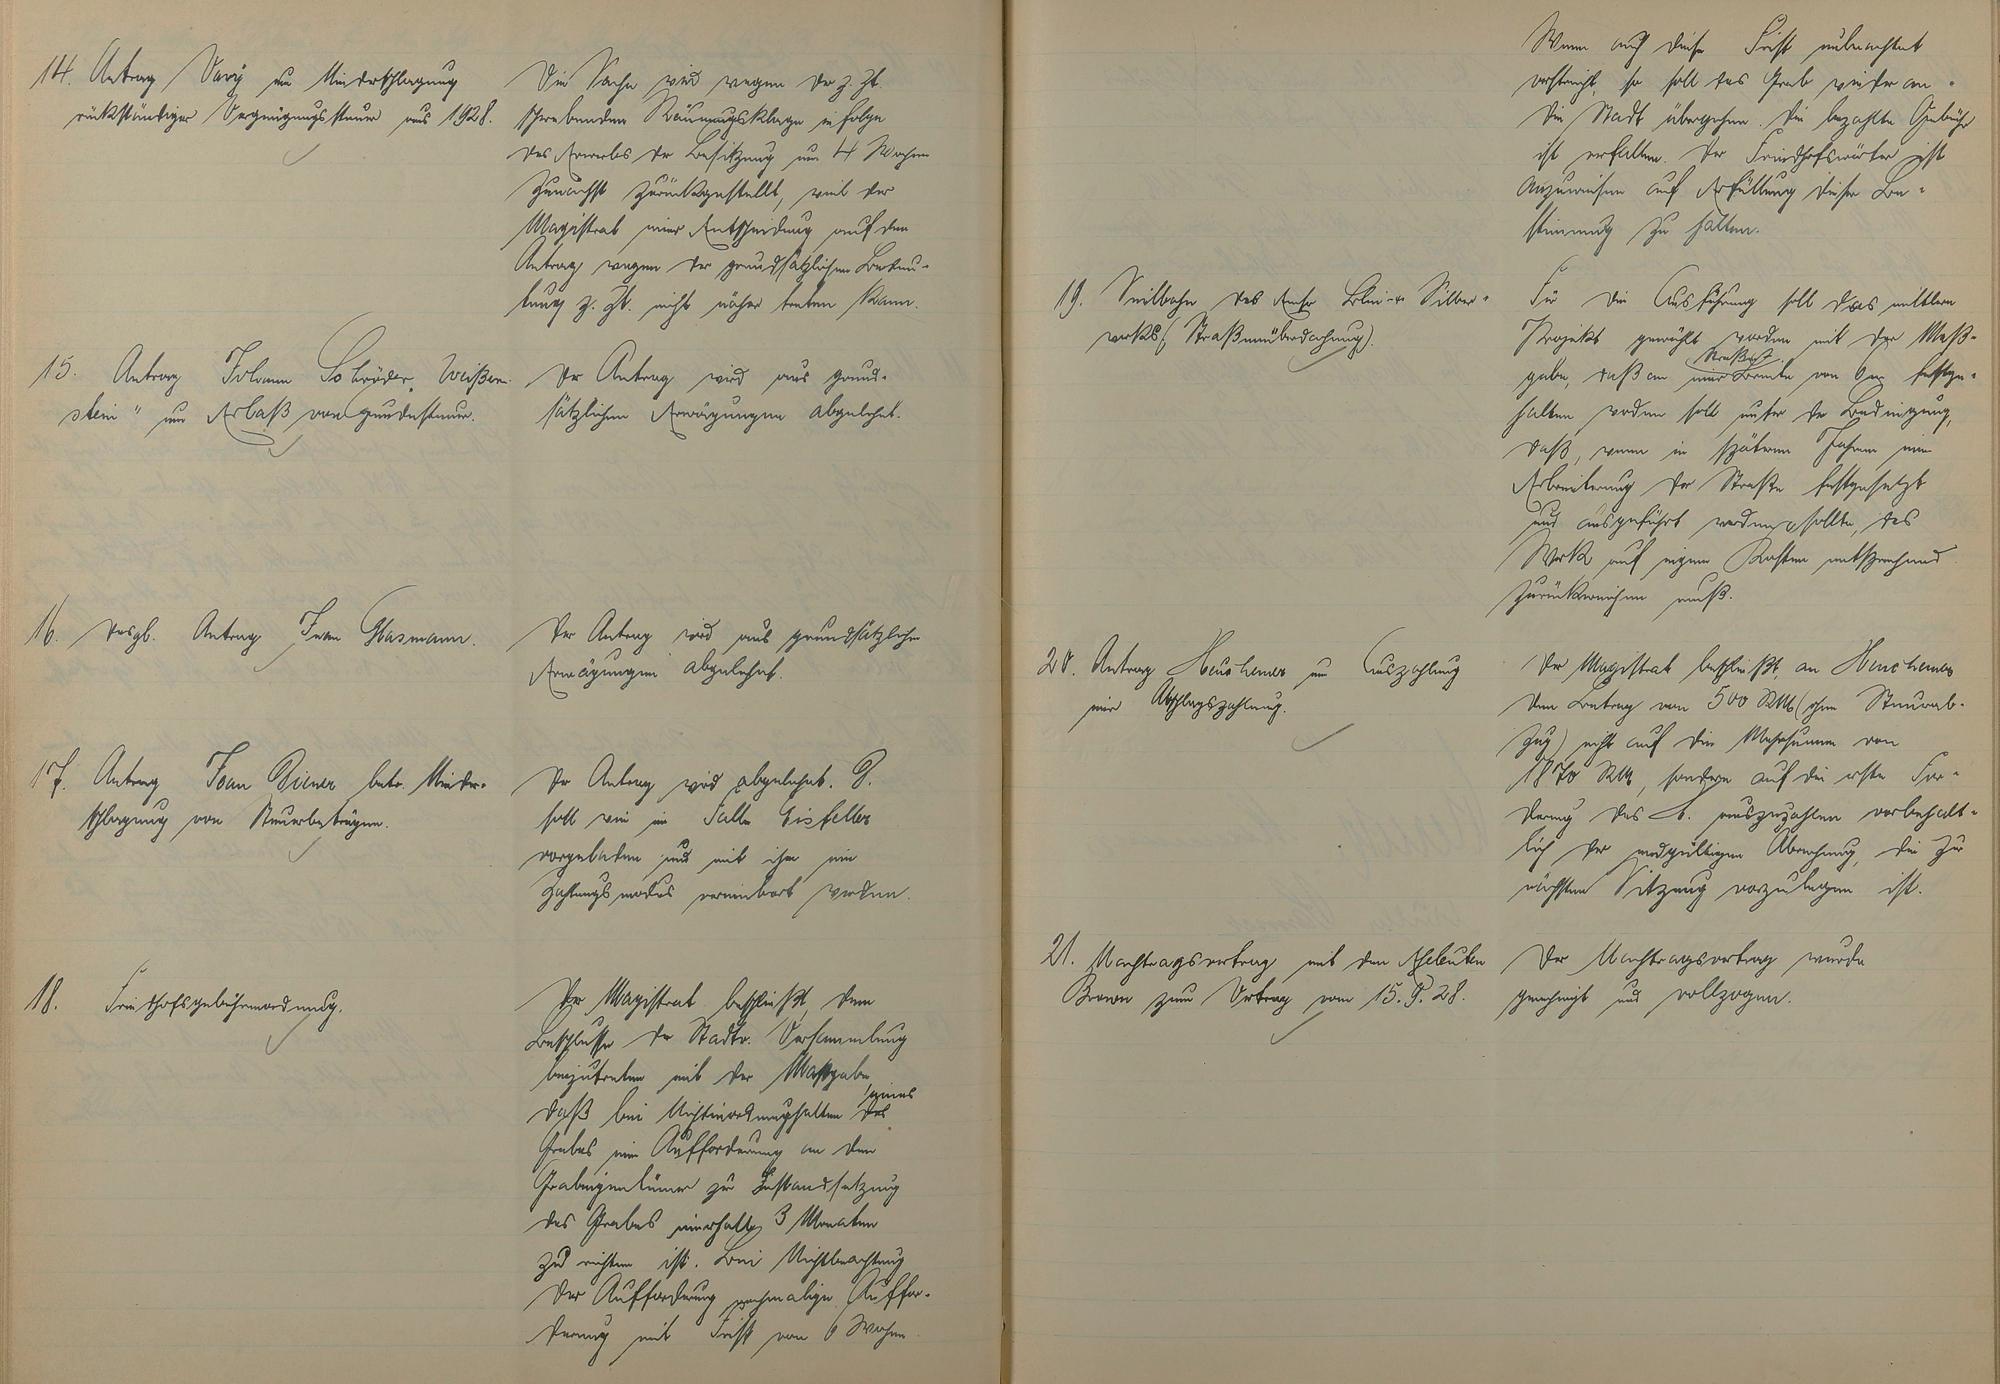 14. Antrag Savÿ um Niederschlagung
rückständiger Vergnügungssteuer aus 1928.
Die Sache wird wegen der z. Zt.
schwebenden Räumungsklage infolge
des Erwerbs der Besitzung um 4 Wochen
zunächst zurückgestellt, weil der
Magistrat einer Entscheidung auf den
Antrag wegen der grundsätzlichen Bedeu-
tung z. Zt. nicht näher treten kann.
15. Antrag Johann Schröder, Weißen-
stein" um Erlaß von Hundesteuer.
Der Antrag wird aus grund-
sätzlichen Erwägungen abgelehnt.
16. Desgl. Antrag Frau Glasmann.
Der Antrag wird aus grundsätzlichen
Erwägungen abgelehnt.
17. Antrag betr. Nieder-
schlagung von Steuerbeträgen.
Der Antrag wird abgelehnt. B.
soll wie im Falle Eisfeller
vorgeladen und mit ihm ein
Zahlungsmodus vereinbart werden.
18. Friedhofsgebührenordnung.
Der Magistrat beschließt, dem
Beschlusse der Stadtv. Versammlung
beizutreten mit der Maßgabe,
daß bei Nichtinordnunghalten des
eines
Grabes eine Aufforderung an den
Grabeigentümer zur Instandsetzung
des Grabes innerhalb 3 Monaten
zu richten ist. Bei Nichtbeachtung
der Aufforderung nochmalige Auffor-
derung mit Frist von 6 Wochen
Wenn auch diese Frist unbeachtet
verstreicht, so soll das Grab wieder an
die Stadt übergehen. Die bezahlte Gebühr
ist verfallen. Der Friedhofswärter ist
anzuweisen auf Erfüllung dieser Be-
stimmung zu halten.
19. Seilbahn des Emser Blei- u. Silber-
werks (Straßenüberdachung).
Für die Ausführung soll das mittlere
Projekt gewählt werden mit der Maß-
gabe, daß an einer Breite von 6 m festge-
Straßen
halten werden soll unter der Bedingung,
daß, wenn in späteren Jahren eine
Erbreiterung der Straße festgesetzt
und ausgeführt werden sollte, das
Werk auf eigene Kosten entsprechend
zurückweichen muß.
20. Antrag Heuchemer um Auszahlung
einer Abschlagszahlung.
Der Magistrat beschließt, an Heuchemer
den Betrag von 500 RM (ohne Steuerab-
zug) nicht auf die Mehrsumme von
1870 RM, sondern auf die erste For-
derung des auszuzahlen vorbehalt-
lich der endgültigen Abrechnung, die zur
nächsten Sitzung vorzulegen ist.
21. Nachtragsvertrag mit den Eheleuten
zum Vertrag vom 15. 9. 28.
Der Nachtragsvertrag wurde
genehmigt und vollzogen.